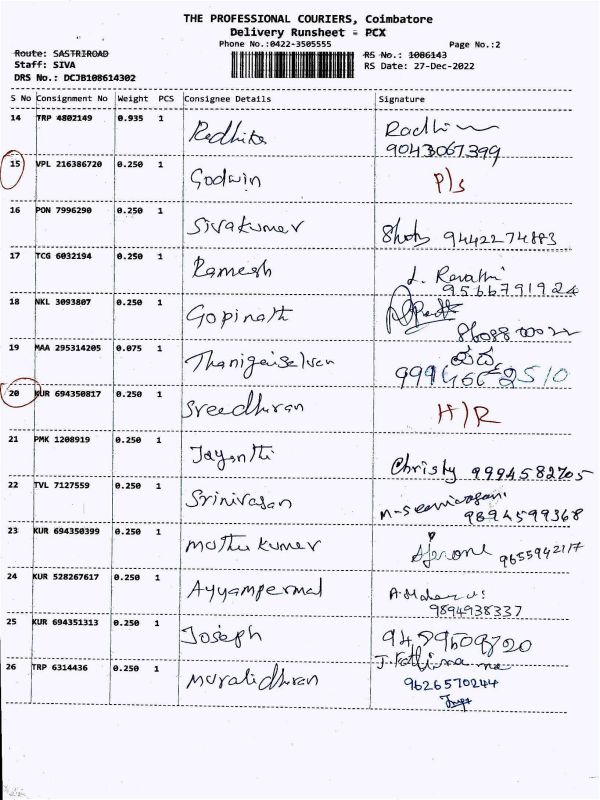 THE PROFESSIONAL COURIERS, Coimbatore
Delivery Runsheet - PCX
Phone No.:0422-3505555 Page No.:2
Route: SASTRIROAD RS No.: 1086143
Staff: SIVA RS Date: 27-Dec-2022
DRS No.: DCJB108614302
S No Consignment No Weight PCS Consignee Details Signature
14 TRP 4802149 0.935 1 Radhika Radhi
9043067399
15 VPL 216386720 0.250 1 Godwin P/s
16 PON 7996290 0.250 1 Sivakumar 9442274883
17 TCG 6032194 0.250 1 Ramesh L. Revathi
9566791924
18 NKL 3093807 0.250 1 Gopinath
8608800022
19 MAA 295314205 0.075 1 Thanigaiselvan
20 KUR 694350817 0.250 1 Sreedhiran H/R
21 PMK 1208919 0.250 1 Jayanthi Christy 9994582705
22 TVL 7127559 0.250 1 Srinivasan M-Seenivasan
9894599368
23 KUR 694350399 0.250 1 Muthu kumar Jerone 9655942117
24 KUR 528267617 0.250 1 Ayyampermal
9894938337
25 KUR 694351313 0.250 1 Joseph 9489609820
26 TRP 6314436 0.250 1 Muralidhiran
9626570244